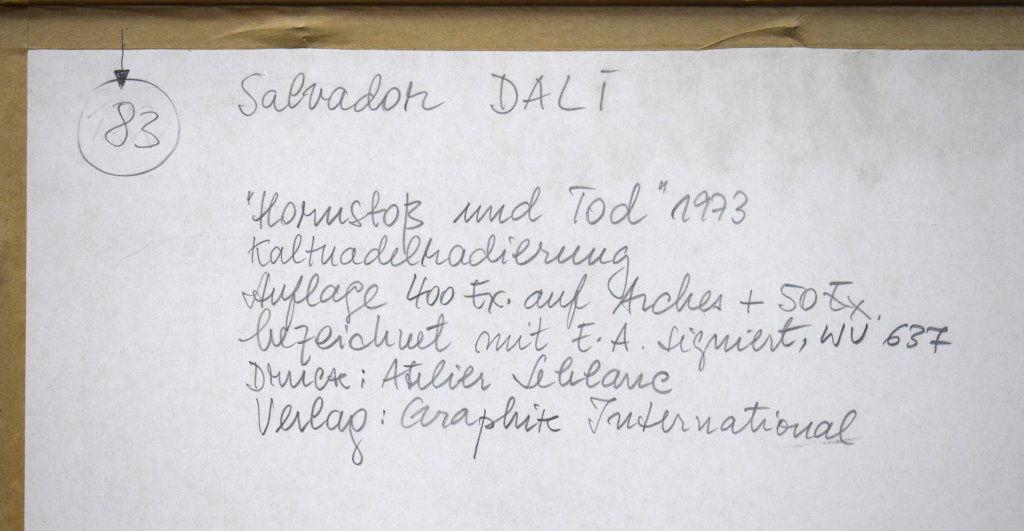 83
Salvador DALI
"Hornstoß und Tod" 1973
Kaltnadelradierung
Auflage 400 Ex. auf Arches + 50 Ex.
bezeichnet mit E.A. signiert, WV 637
Druck: Atelier Leblanc
Verlag: Graphik International